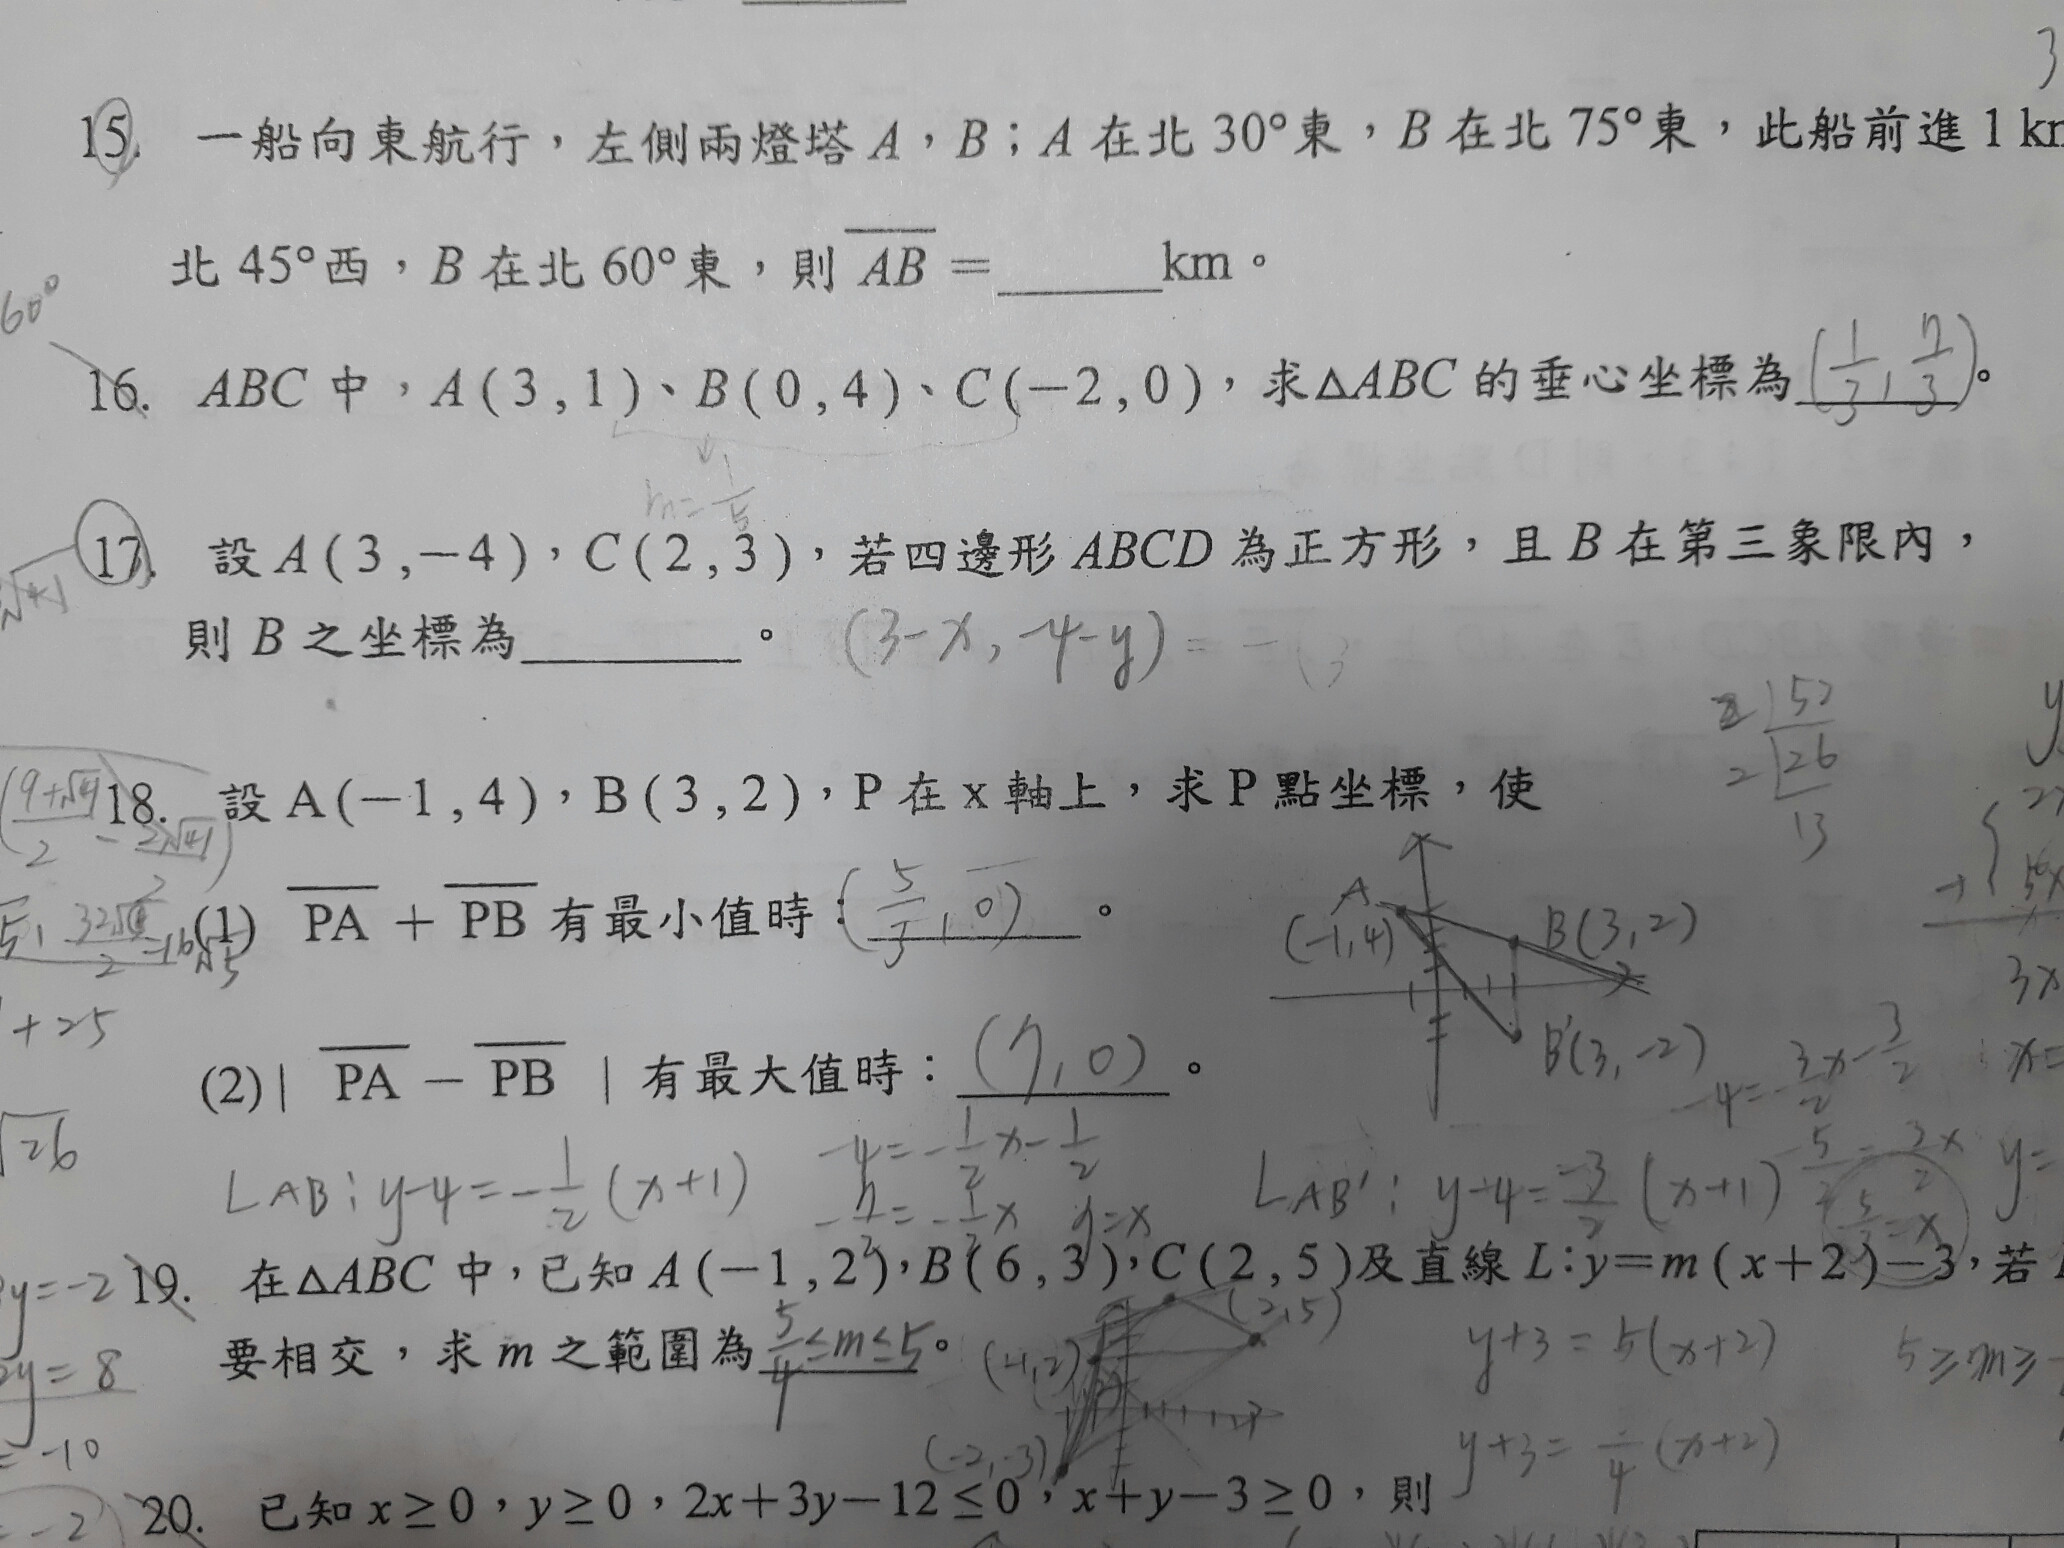 15. 一船向東航行，左側兩燈塔 A，B；A 在北 30°東，B 在北 75°東，此船前進 1 km
北 45°西，B 在北 60°東，則 AB = ______ km。
60°
16. ABC 中，A(3,1)、B(0,4)、C(−2,0)，求△ABC 的垂心坐標為 (1/3, 7/3)。
m=1/5
17. 設 A(3,−4)，C(2,3)，若四邊形 ABCD 為正方形，且 B 在第三象限內，
則 B 之坐標為______。 (3-x, -4-y) = -(3
2|52
2|26
13
18. 設 A(−1,4)，B(3,2)，P 在 x 軸上，求 P 點坐標，使
(1) PA + PB 有最小值時：(5/3, 0)。
A
(-1,4)
B(3,2)
B'(3,-2)
+25
(2)| PA − PB | 有最大值時：(7,0)。
√26
-4=-3/2x-3/2
LAB: y-4=-1/2(x+1)
-4=-1/2x-1/2
-7/2=-1/2x
LAB': y-4=-3/2(x+1)
5/3=x
19. 在△ABC 中，已知 A(−1,2)，B(6,3)，C(2,5)及直線 L:y=m(x+2)−3，若
要相交，求 m 之範圍為 5/4≤m≤5。
(2,5)
(-1,2)
(-2,-3)
y+3=5(x+2)
5≥m≥
y=-2
2y=8
=-10
=-2
20. 已知 x≥0，y≥0，2x+3y−12≤0，x+y−3≥0，則